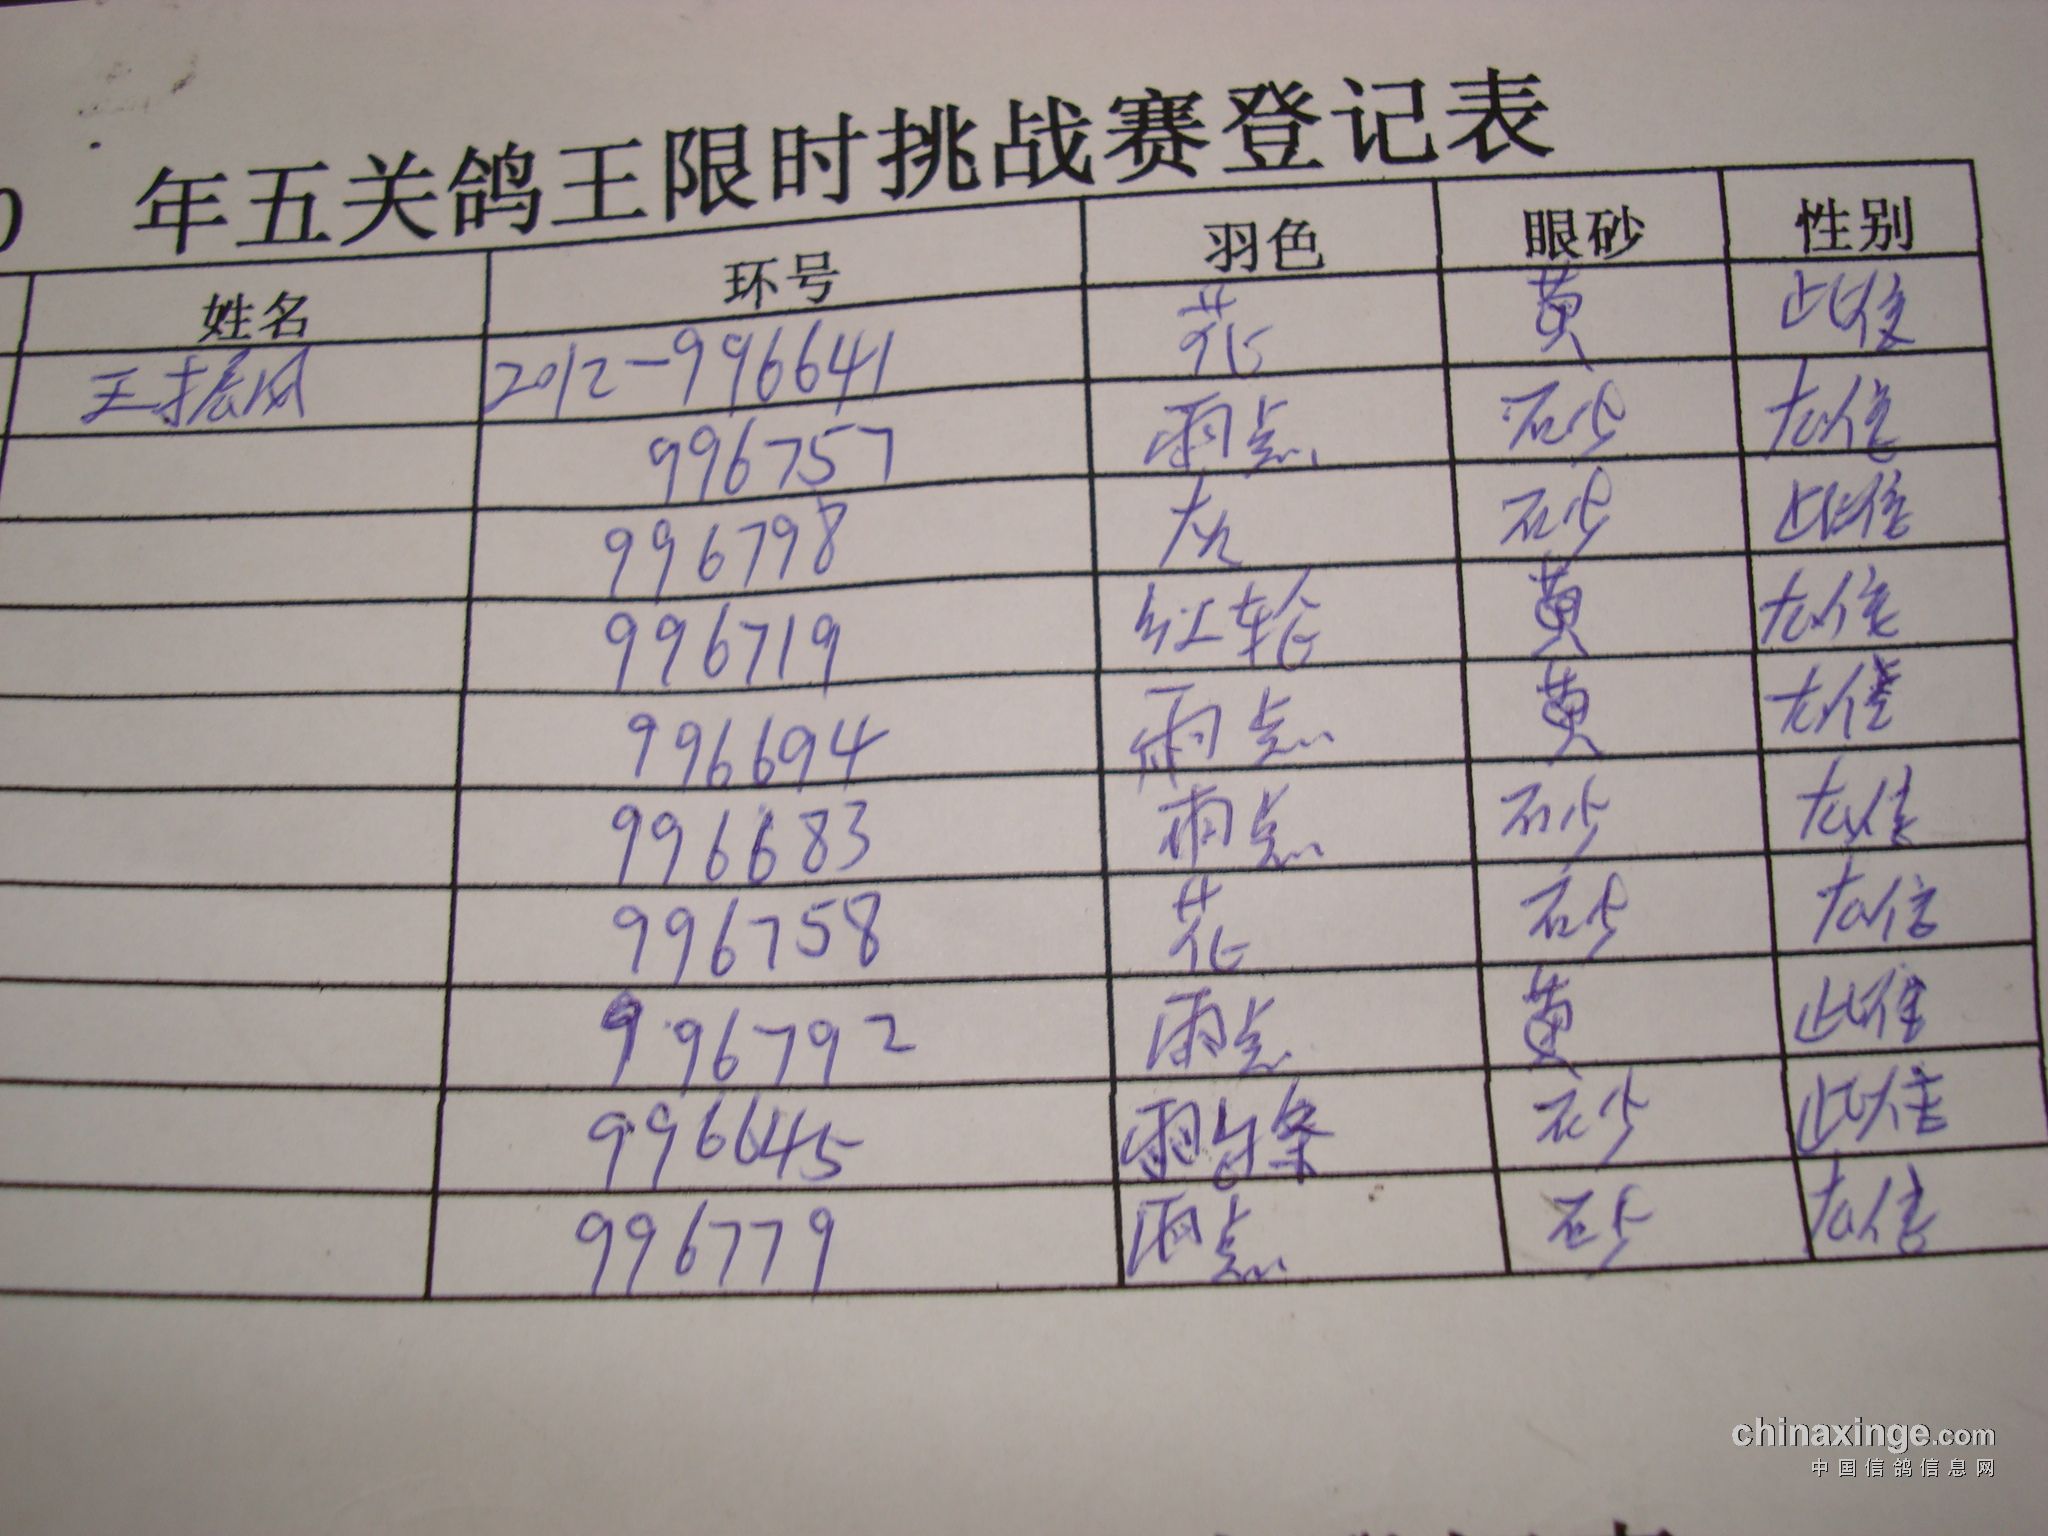 年五关鸽王限时挑战赛登记表
姓名 环号 羽色 眼砂 性别
王振风 2012-996641 花 黄
996757 雨点 砂
996798 灰 砂
996719 红轮 黄
996694 雨点 黄
996683 雨点 砂
996758 花 砂
996792 雨点 黄
996645 雨白条 砂
996779 雨点 砂
chinaxinge.com
中国信鸽信息网